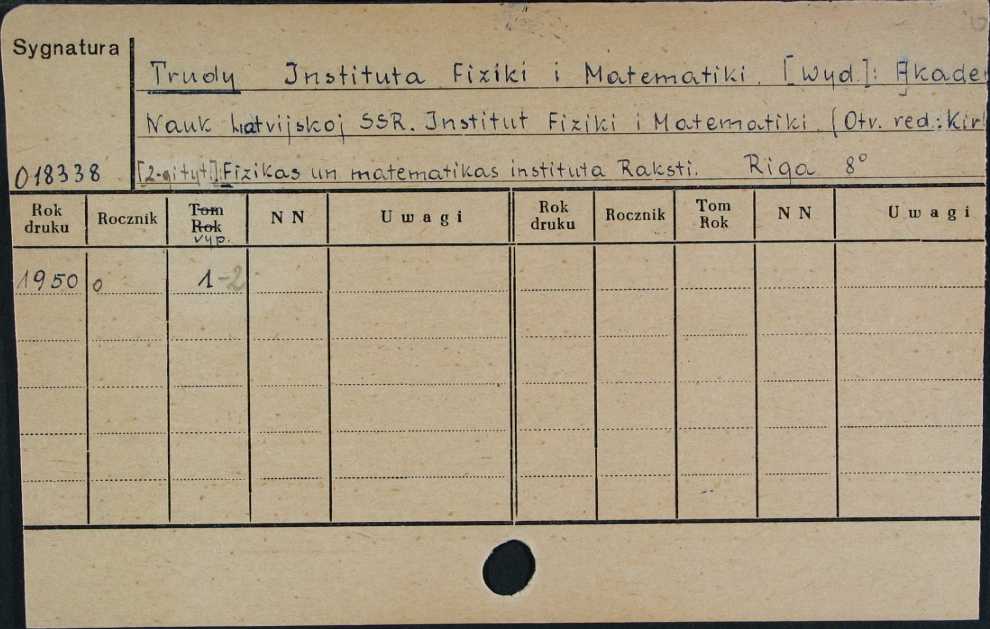 Sygnatura
Trudy Instituta Fiziki i Matematiki. [Wyd.]: Akade
Nauk Latvijskoj SSR. Institut Fiziki i Matematiki. (Otv. red.: Kir
018338 [2-gi tyt.]: Fizikas un matematikas instituta Raksti. Riga 8°
Rok druku Rocznik Tom Rok vyp. N N Uwagi Rok druku Rocznik Tom Rok N N Uwagi
1950 0 1-2